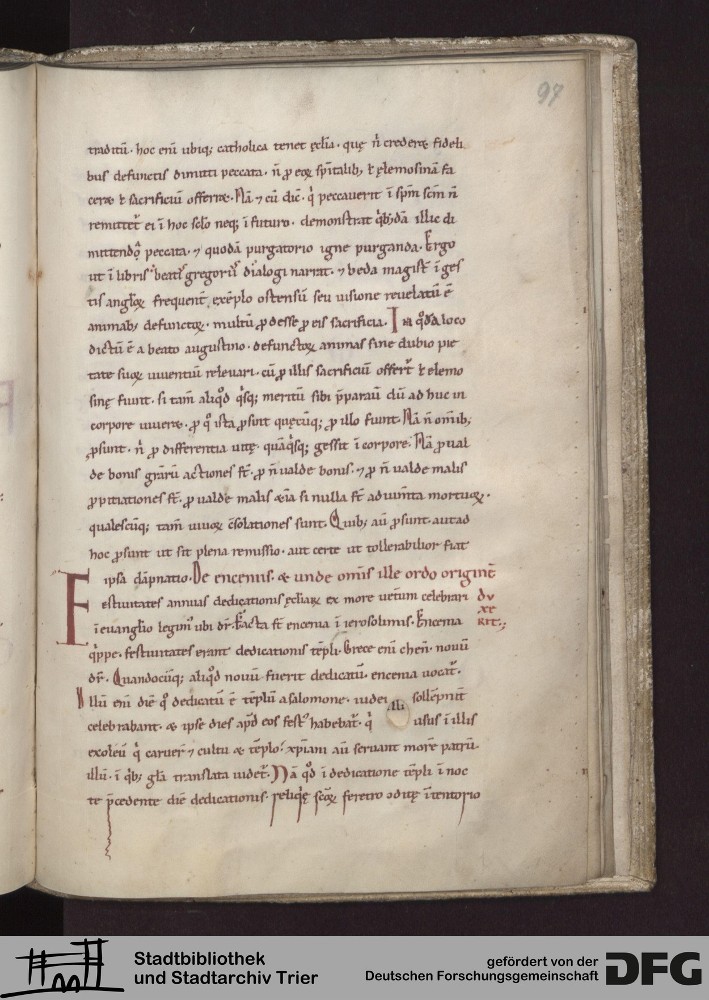 97
traditū· hoc eni̅ ubiq; catholica tenet ęcl̅ia· quę n̅ crederet̅ fideli
bus defunctis dimitti peccata· n̅ p̱ eoꝝ sp̅italib; ł ęlemosinā fa
ceret ł sacrificiū offerret· Nā ⁊ cū dic̅· q̇ peccauerit ī sp̅m sc̅m n̅
remittet̅ ei ī hoc sc̅lo neq; ī futuro· demonstrat q̇b;dā illic di
mittenda peccata· ⁊ quodā purgatorio igne purganda· Ergo
ut ī libris beati gregorii dialogi narrat· ⁊ beda magist̅ ī ges
tis angloꝝ frequent̅ exēplo ostensū seu uisione reuelatū ē
animab; defunctoꝝ· multū p̱desse p̱ eis sacrificia· In q̊dā loco
dictū ē a beato augustino· defunctoꝝ animas sine dubio pie
tate suoꝝ uiuentiū releuari· cū p̱ illis sacrificiū offert̅ ł elemo
sinę fiunt· si tam̅ aliq̊d q̇sq; meritū sibi p̅parauit dū ad huc in
corpore uiueret· p̱ q̊ ista p̱sint quęcūq; p̱ illo fiunt· Nā n̅ om̅ib;
p̱sunt· n̅ p̱ differentia uitę· quā q̇sq; gessit ī corpore· Nā p̱ ual
de bonis gr̅arū actiones st̅· p̱ n̅ ualde bonis· ⁊ p̱ n̅ ualde malis
p̱pitiationes st̅· p̱ ualde malis &iā si nulla st̅ adium̅ta mortuoꝝ·
qualescūq; tam̅ uiuoꝝ c̅solationes sunt· Quib; au̅ p̱sunt· aut ad
hoc p̱sunt ut sit plena remissio· aut certe ut tollerabilior fiat
ipsa dāpnatio· De enceniis· & unde om̅is ille ordo origine̅
Festiuitates annuas dedicationis ęcl̅iarꝝ ex more uet̅um celebrari du
xe
rit·;
ī euangl̅io legim᷒ ubi dr̅· Facta st̅ encenia ī ierosolimis· Encenia
q̇ppe· festiuitates erant dedicationis tēpli· Grece eni̅ chen̅· nouū
dr̅· Quandocūq; aliq̊d nouū fuerit dedicatū· encenia uocat̅·
Illū eni̅ diē q̊ dedicatū ē tēplū a salomone· iudei illi sollēpnit̅
celebrabant· & ipse dies apd̅ eos fest᷒ habebat̅· q̇ usus ī illis
exoleuit q̇ caruer̅ ⁊ cultu & tēplo· xp̅iani au̅ seruant more̅ patrū·
illū· ī q̇b; gl̅a translata uidet̅· Nā q̊d ī dedicatione tēpli ī noc
te p̅cedente diē dedicationis· reliq̇ę sc̅oꝝ feretro oditę ī tentorio
Stadtbibliothek
und Stadtarchiv Trier
gefördert von der
Deutschen Forschungsgemeinschaft
DFG